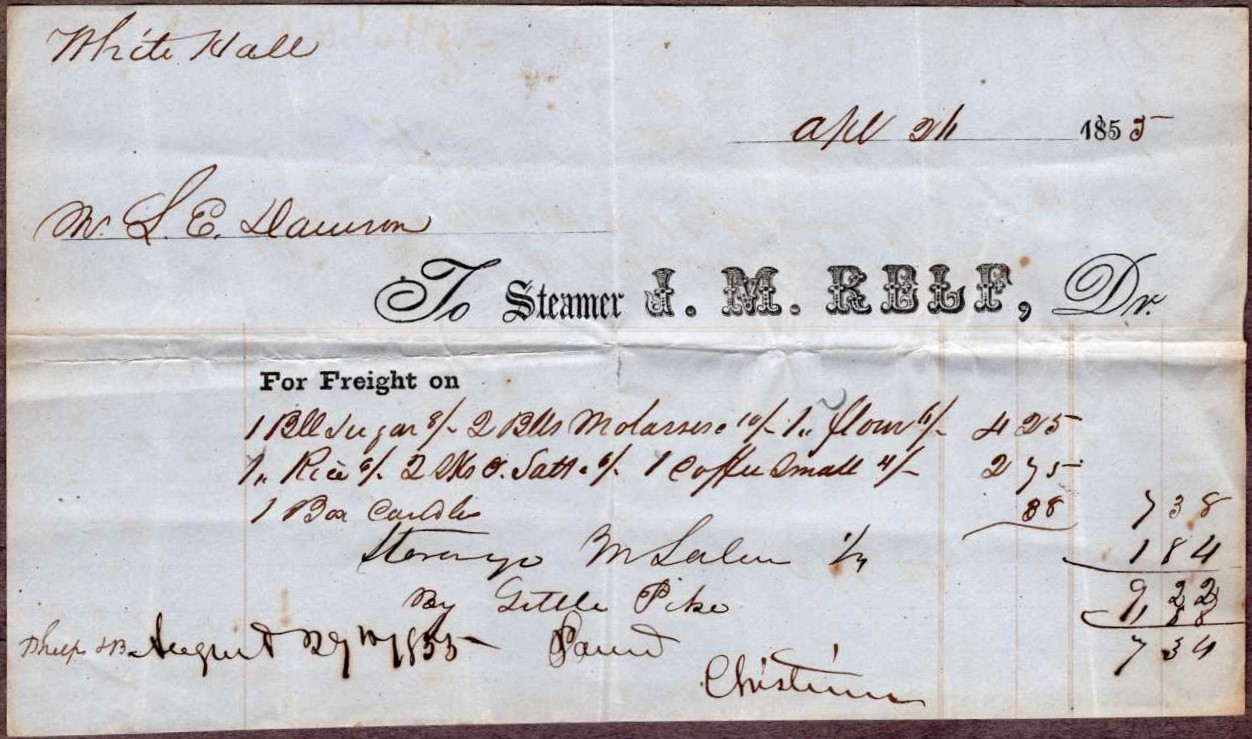 White Hall
Apl 26 1855
Mr. L. E. Dawson
To Steamer J. M. RELF, Dr.
For Freight on
1 Bll Sugar 8/- 2 Blls Molasses 10/- 1 „ flour 6/- 4 25
1 „ Rice 6/- 2 Sks C. Salt 6/- 1 Coffee Small 4/- 2 75
1 Box Candles 38 7 38
Storage 1/4 1 84
9 22
By Little Pike 1, 88
7 34
August 1855 Paid